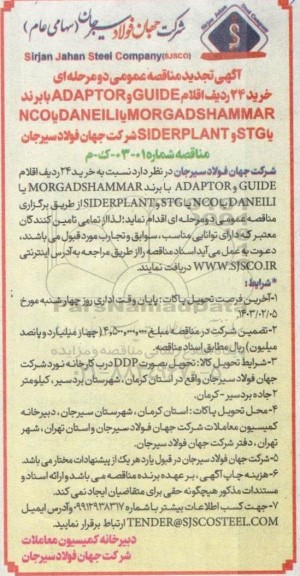 شرکت جهان فولاد سیرجان (سهامی عام)
Sirjan Jahan Steel Company(SJSCO)
آگهی تجدید مناقصه عمومی دو مرحله ای
خرید ۲۴ ردیف اقلام GUIDE و ADAPTOR با برند
MORGADSHAMMAR یا DANEILI یا NCO
یا STG و SIDERPLANT شرکت جهان فولاد سیرجان
مناقصه شماره ۰۱-۰۳-ک-م
شرکت جهان فولاد سیرجان در نظر دارد نسبت به خرید ۲۴ ردیف اقلام
GUIDE و ADAPTOR با برند MORGADSHAMMAR یا
DANEILI یا NCO یا STG و SIDERPLANT از طریق برگزاری
مناقصه عمومی دو مرحله ای اقدام نماید؛ لذا از تمامی تامین کنندگان
معتبر که دارای توانایی مناسب، سوابق و تجارب مورد قبول می باشند،
دعوت به عمل می آید اسناد مناقصه را از طریق مراجعه به آدرس اینترنتی
WWW.SJSCO.IR دریافت نمایند.
* شرایط:
۱-آخرین فرصت تحویل پاکات: پایان وقت اداری روز چهارشنبه مورخ
۱۴۰۳/۰۲/۰۵
۲-تضمین شرکت در مناقصه مبلغ ۴،۵۰۰،۰۰۰،۰۰۰ (چهار میلیارد و پانصد
میلیون) ریال مطابق اسناد مناقصه.
۳-شرایط تحویل کالا: تحویل بصورت DDP درب کارخانه نورد شرکت
جهان فولاد سیرجان واقع در استان کرمان، شهرستان بردسیر، کیلومتر
۲ جاده بردسیر - کرمان.
۴-محل تحویل پاکات: استان کرمان، شهرستان سیرجان، دبیرخانه
کمیسیون معاملات شرکت جهان فولاد سیرجان و استان تهران، شهر
تهران، دفتر شرکت جهان فولاد سیرجان.
۵-شرکت جهان فولاد سیرجان در قبول یا رد هر یک از پیشنهادات مختار می باشد.
۶-هزینه چاپ آگهی، بر عهده برنده مناقصه می باشد و ارائه اسناد و
مستندات مذکور هیچگونه حقی برای متقاضیان ایجاد نمی کند.
۷-جهت کسب اطلاعات بیشتر با شماره ۰۹۹۱۲۹۳۸۳۱۷ و آدرس ایمیل
TENDER@SJSCOSTEEL.COM ارتباط برقرار نمایید.
دبیرخانه کمیسیون معاملات
شرکت جهان فولاد سیرجان